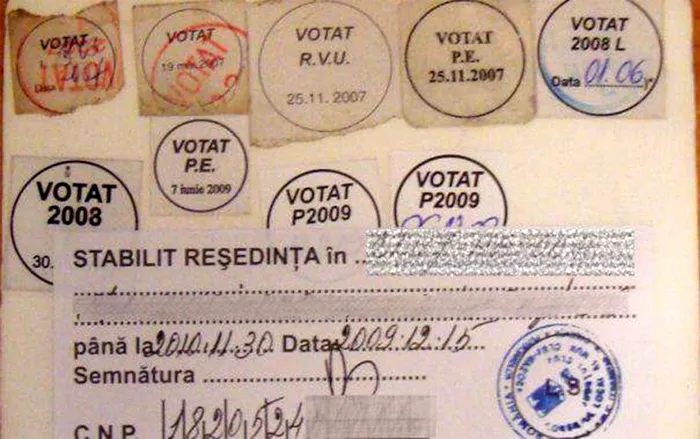 VOTAT
VOTAT
VOTAT
19 mai 2007
VOTAT
VOTAT
R.V.U.
25.11. 2007
VOTAT
P.E.
25.11.2007
VOTAT
2008 L
Data 01.06
VOTAT
2008
30.
VOTAT
P.E.
7 iunie 2009
VOTAT
P2009
VOTAT
P2009
STABILIT REŞEDINŢA în
până la 2010.11.30 Data 2009.12.15
Semnătura
C N P 1 8 2 0 5 2 4
ROMÂNIA